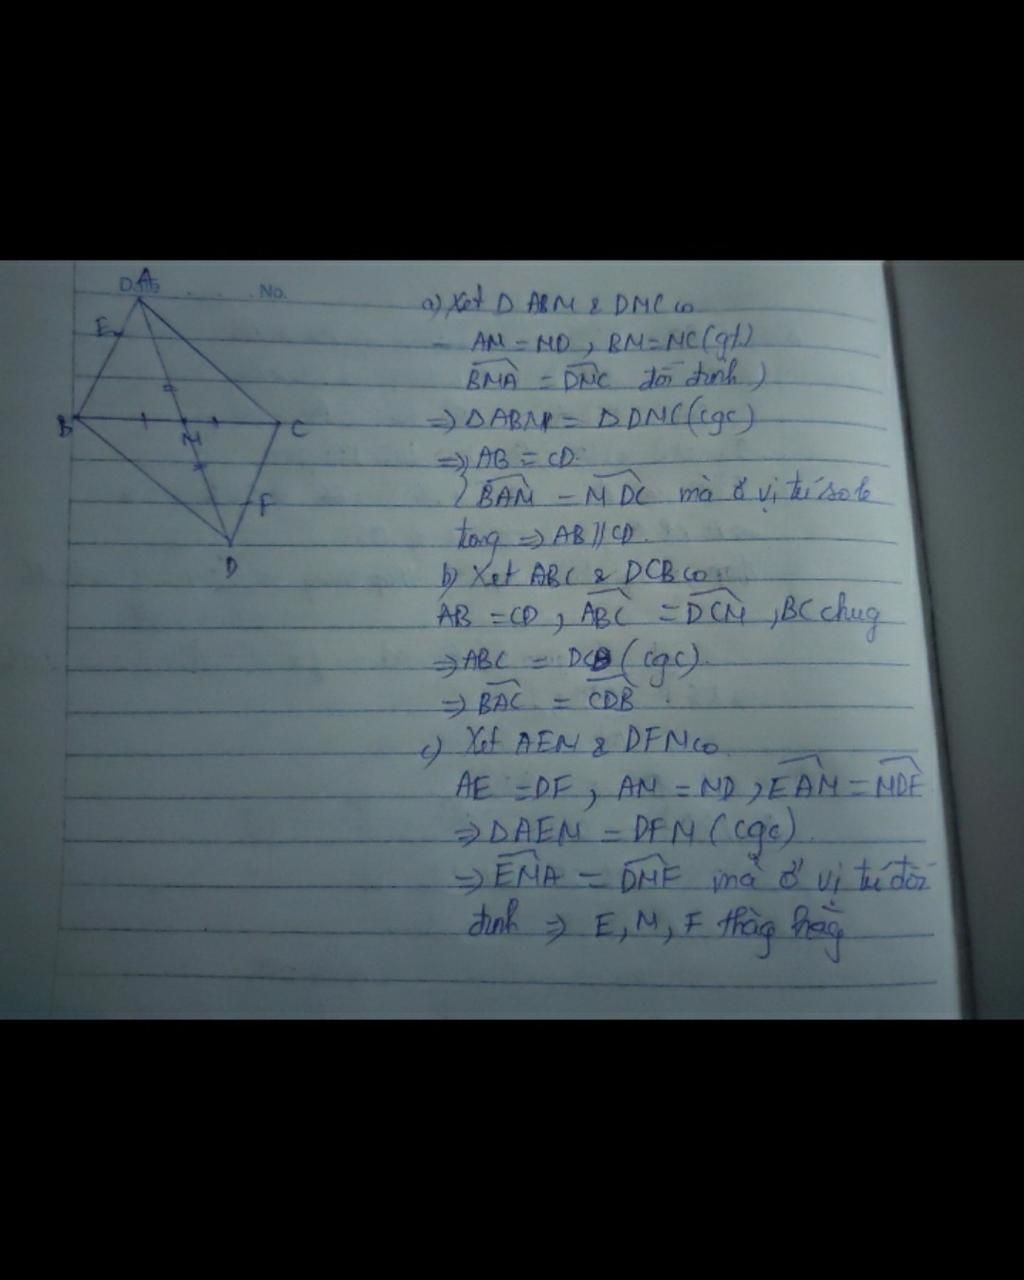 A
Date No.
E
B
M
C
F
D
a) Xet D ABM & DMC co
- AM = MD , BM = MC (gt)
BMA = DMC đối đỉnh )
=> D ABM = D DMC (cgc)
=> AB = CD.
BAM = MDC mà ở vị trí so le
tong => AB // CD.
b) Xet ABC & DCB co:
AB = CD , ABC = DCM , BC chug
=> ABC = DCB (cgc).
=> BAC = CDB
c) Xet AEM & DFM co
AE = DF , AM = MD , EAM = MDF
=> D AEM = DFM (cgc).
=> EMA = DMF mà ở vị trí đối
đỉnh => E, M, F thằg hằg